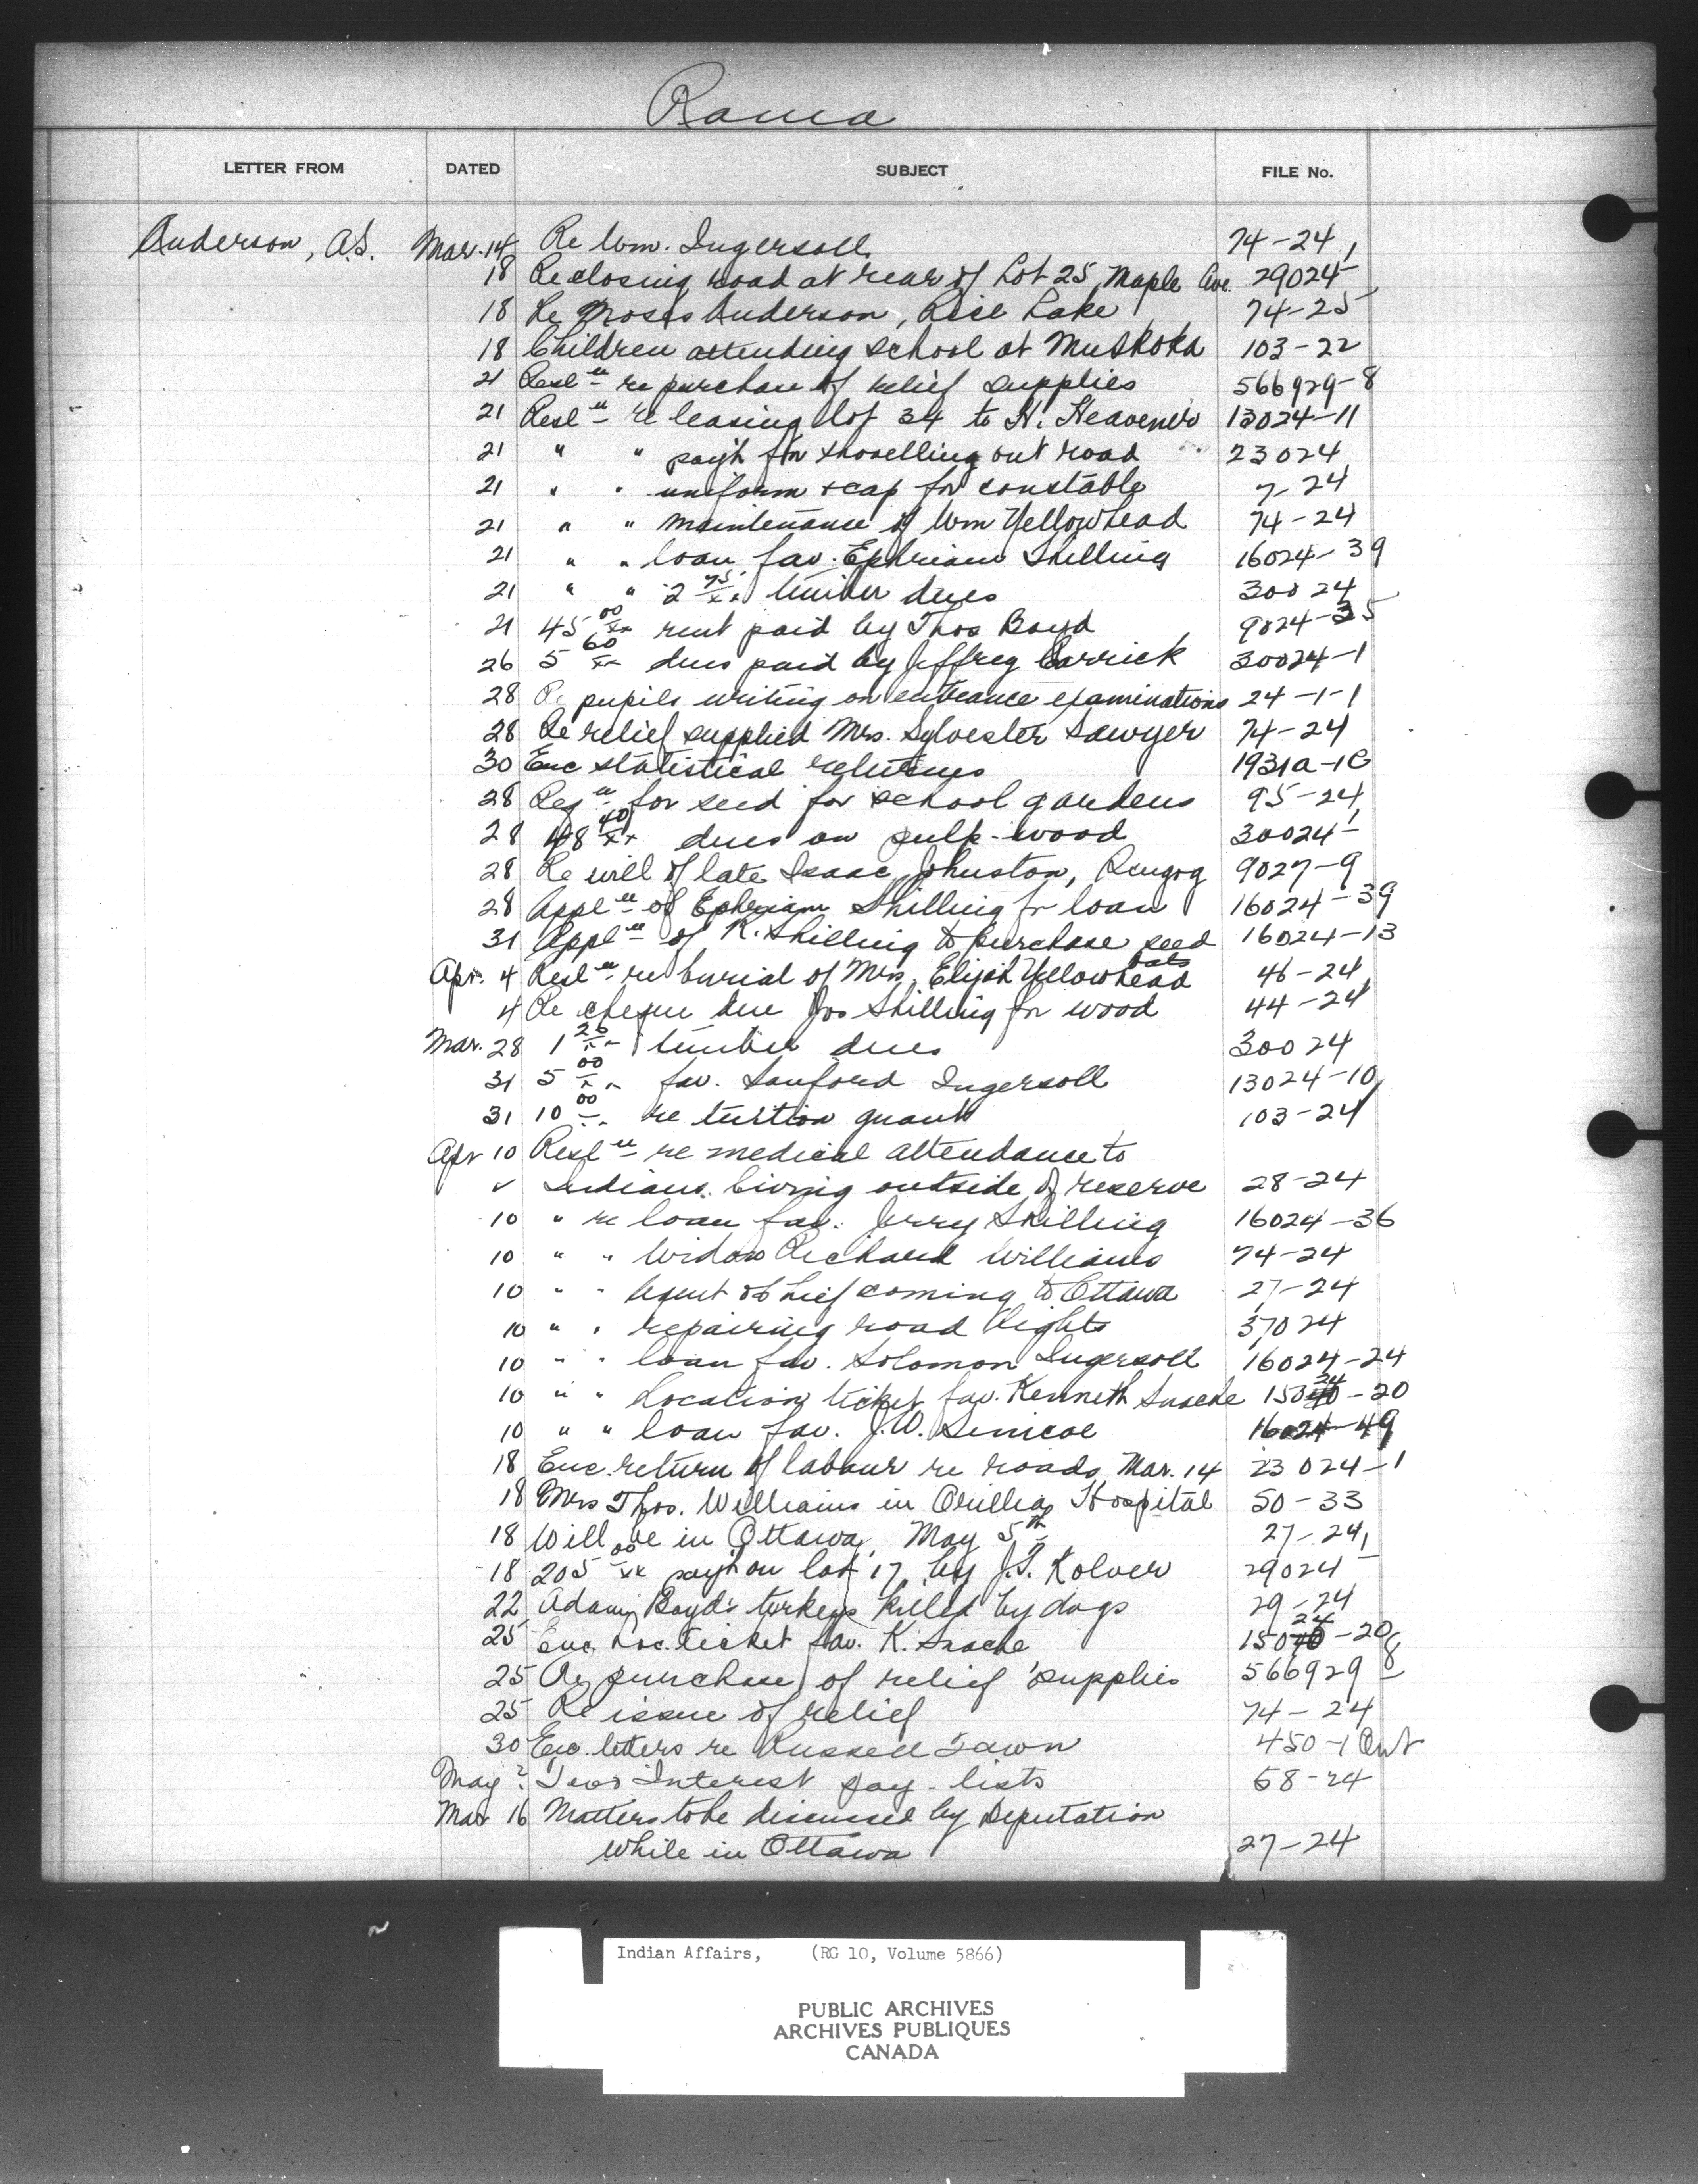 Rama
LETTER FROM DATED SUBJECT FILE No.
Anderson, A.S. Mar. 14 Re Wm. Ingersoll 74-24
18 Re closing road at rear of Lot 25 Maple Ave. 29024-
18 Re Moses Anderson, Rice Lake 74-25
18 Children attending school at Muskoka 103-22
21 Resl n re purchase of relief supplies 566929-8
21 Resl n re leasing lot 34 to H. Heavener 13024-11
21 " " paym't for shovelling out road 23024
21 " " uniform + cap for constable 7-24
21 " " maintenance of Wm Yellowhead 74-24
21 " " loan fav. Ephriam Shilling 16024-39
21 " " 2 75/xx timber dues 30024
21 45 00/xx rent paid by Thos Boyd 9024-35
26 5 60/xx dues paid by Jeffrey Carrick 30024-1
28 Re pupils writing on entrance examinations 24-1-1
28 Re relief supplied Mrs. Sylvester Sawyer 74-24
30 Enc statistical returns 1931a-1C
28 Req n for seed for school gardens 95-24
28 48 40/xx dues on pulp-wood 30024-1
28 Re will of late Isaac Johnston, Scugog 9027-9
28 Appl n of Ephriam Shilling for loan 16024-39
31 Appl n of R. Shilling to purchase seed oats 16024-13
Apr. 4 Resl n re burial of Mrs. Elijah Yellowhead 46-24
4 Re cheque due Jos Shilling for wood 44-24
Mar. 28 1 26/xx timber dues 30024
31 5 00/xx fav. Sanford Ingersoll 13024-10
31 10 00/xx re tuition grant 103-24
Apr 10 Resl n re medical attendance to
Indians living outside of reserve 28-24
10 " re loan fav. Jerry Shilling 16024-36
10 " " Widow Richard Williams 74-24
10 " " Agent & Chief coming to Ottawa 27-24
10 " " repairing road lights 37024
10 " " loan fav. Solomon Ingersoll 16024-24
10 " " Location ticket fav. Kenneth Snache 15024-20
10 " " loan fav. J.W. Simcoe 16024-49
18 Enc. return of labour re roads Mar. 14 23024-1
18 Mrs Thos. Williams in Orillia Hospital 50-33
18 Will be in Ottawa May 5th 27-24
18 205 00/xx paym't on lot 17 by J.T. Kolver 29024-
22 Adam Boyd's turkeys killed by dogs 29-24
25 Enc. Loc. ticket fav. K. Snache 15024-20
25 Re purchase of relief supplies 566929-8
25 Re issue of relief 74-24
30 Enc. letters re Russell Fawn 450-1 Ont
May 2 Two Interest pay-lists 68-24
Mar 16 Matters to be discussed by Deputation
while in Ottawa 27-24
Indian Affairs, (RG 10, Volume 5866)
PUBLIC ARCHIVES
ARCHIVES PUBLIQUES
CANADA